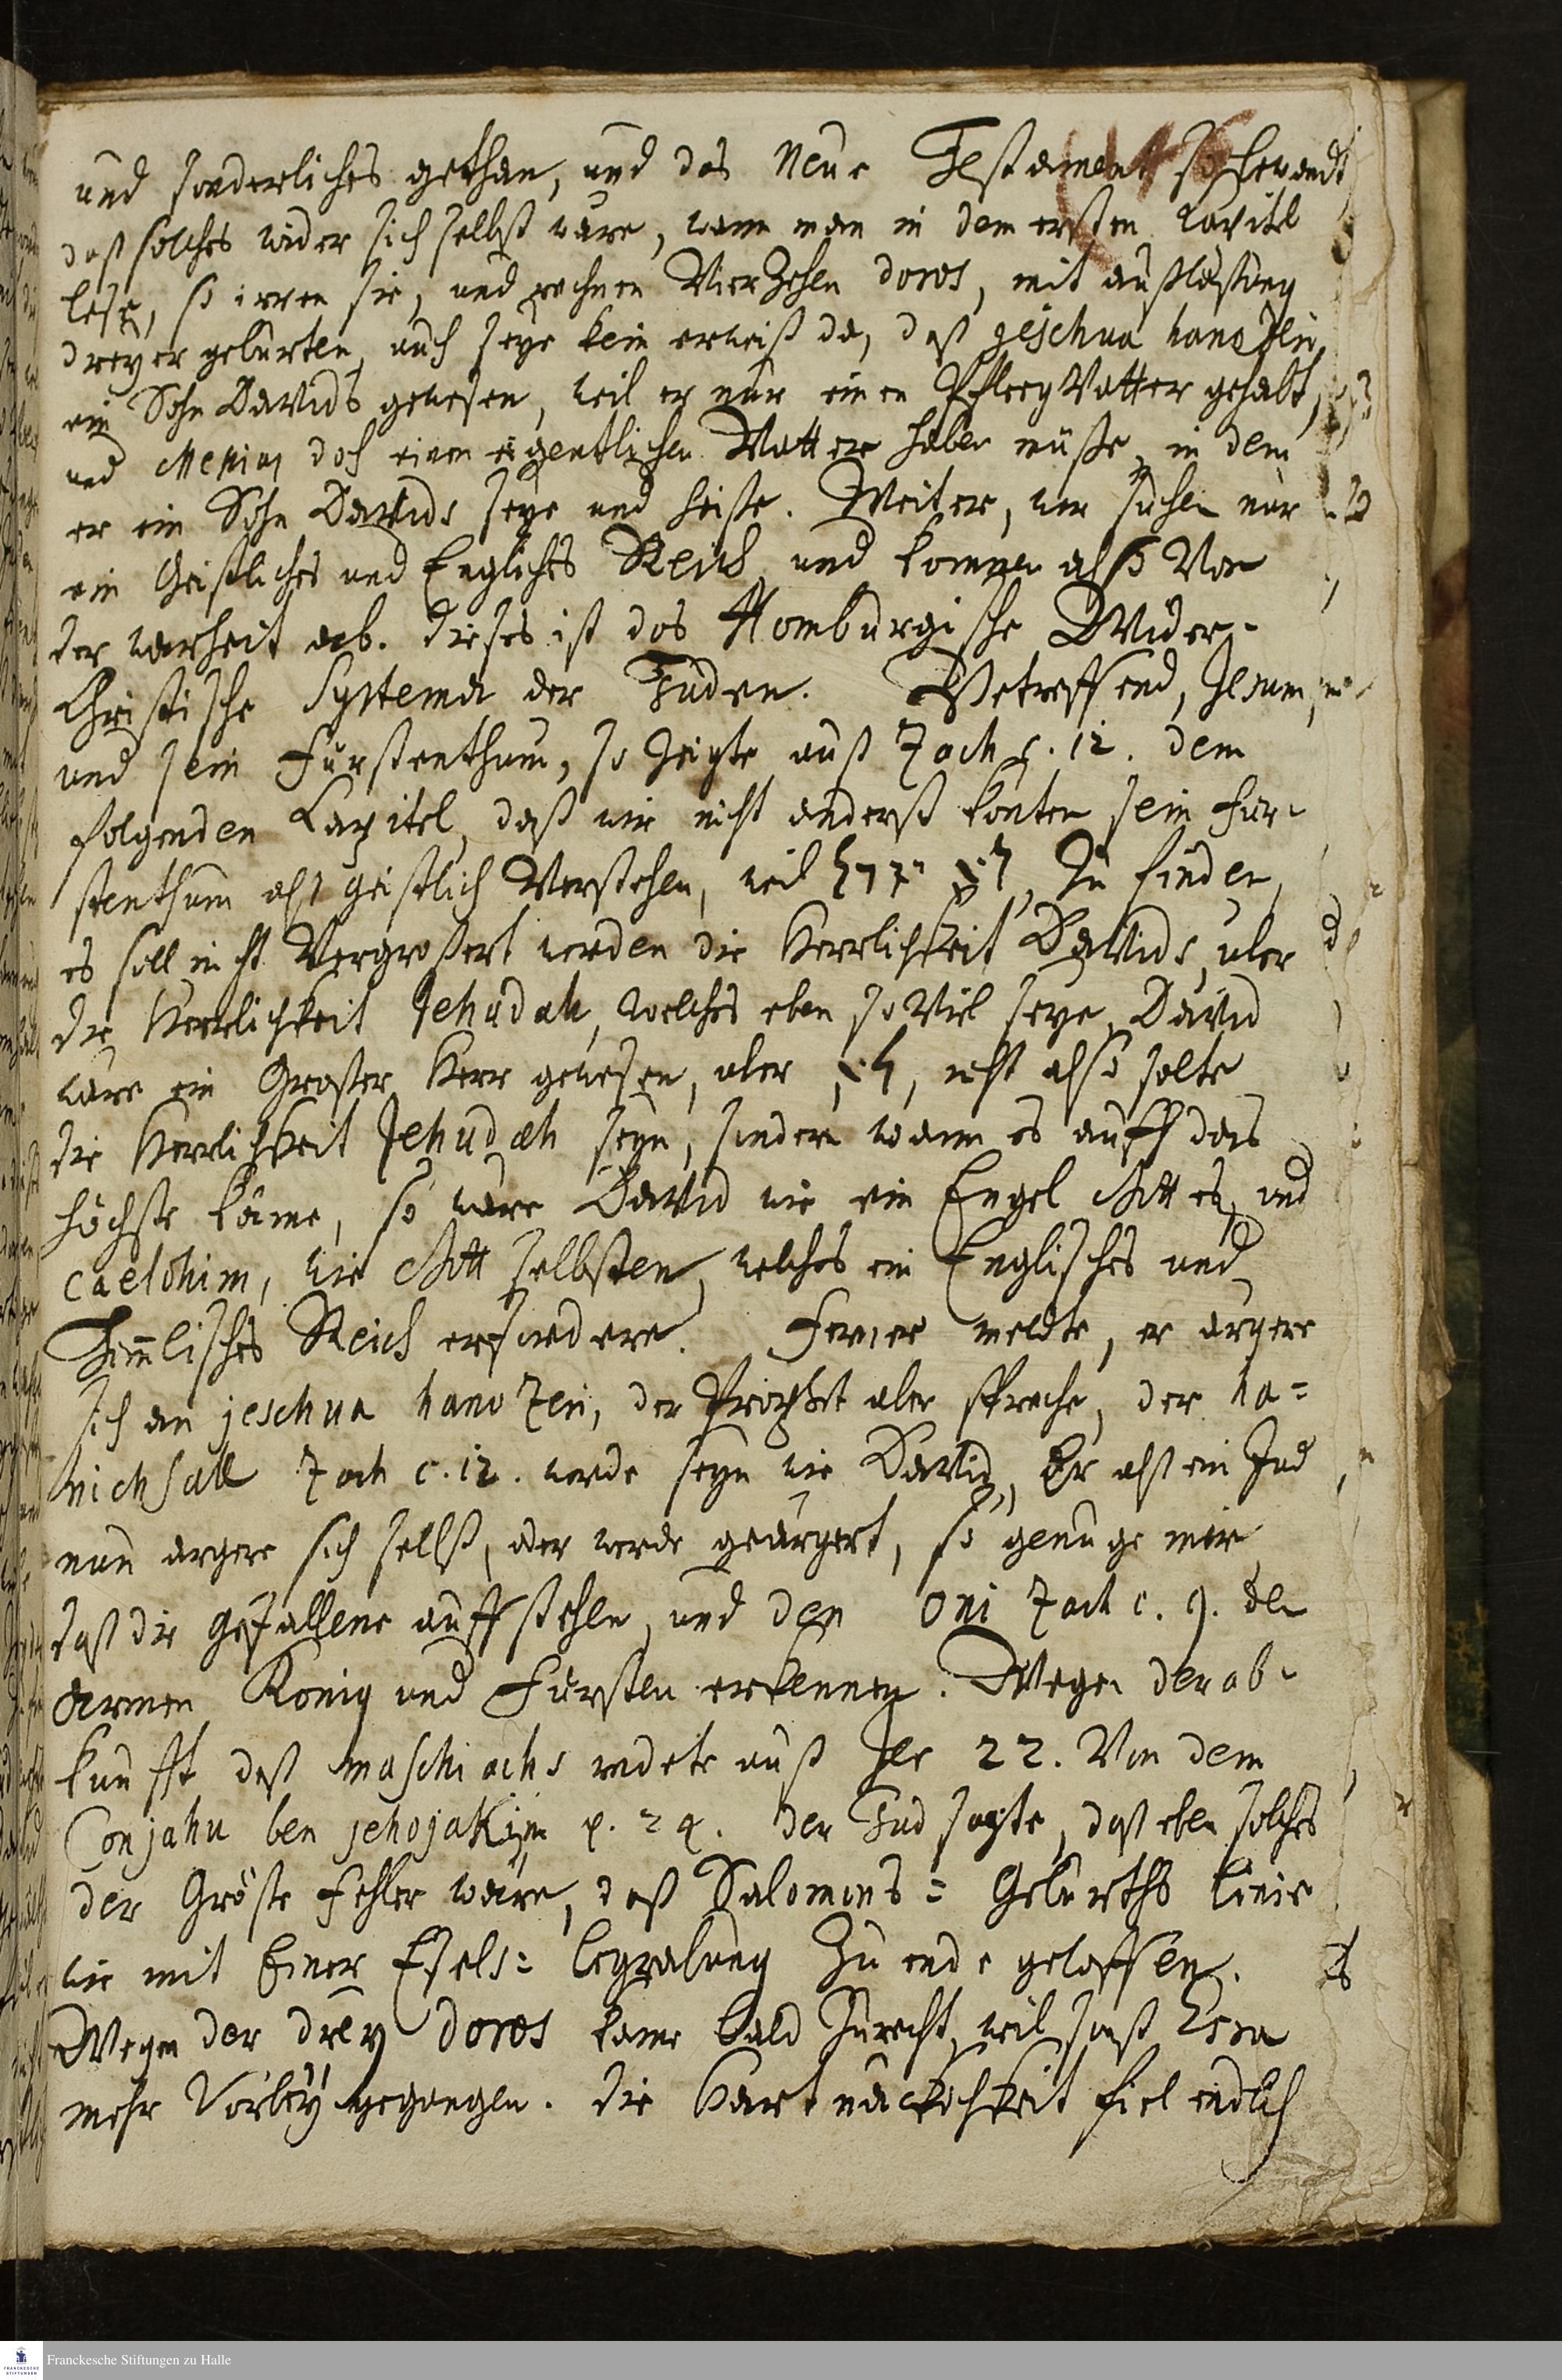 und sonderliches gethan, und das Neue Testament so bewandt
daß solches wider sich selbst wäre, wann man in dem ersten Capitl
lese, so irren sie, und rechnen Vierzehen doros, mit außlaßung
dreyer geburten, auch seye kein erweiß da, daß jeschua hanozri,
ein Sohn Davids gewesen, weil er nur einen PflegVatter gehabt,
und Messias doch einen eigentlichen Vatter haben müsse, in dem
er ein Sohn Davids seye und heiße. Weiter, wir suchen nur
ein Geistliches und Englisches Reich, und kommen also Von
der warheit ab. dieses ist das Homburgische Wider-
Christische Systema der Juden. Betreffend, Jesum,
und sein Fürstenthum, so zeigte auß Zach c. 12. dem
folgenden Capitel, daß wir nicht anderß konten sein Für-
stenthum alß geistlich Verstehen, weil zu finden,
es soll nicht Vergroßert werden die Herrlichkeit Davids, uber
die Herrlichkeit Jehudah, welches eben so Viel seye, David
ware ein Großer Herr gewesen, aber nicht also solte
die Herrlichkeit Jehudah seyn, sondern wann es auff das
höchste käme, so ware David wie ein Engel Gottes, und
caelohim, wie Gott selbsten, welches ein Englisches und
Himlisches Reich erfordere. Ferner meldte, er ärgere
sich an jeschua hanozeri, der Prophet aber spreche, der ha=
nichsall Zach c. 12. werde seyn wie David, Er alß ein Jud
nun argere sich selbst, oder werde geärgert, so genüge mir
daß die gefallene auffstehen, und den Oni Zach c. 9. den
Armen König und Fürsten erkennen. Wegen der ab-
kunfft deß maschiachs redete auß Jer 22. Von dem
Conjahu ben jehojakim p. 24. der Jud sagte, daß eben solches
der Gröste Fehler wäre, daß Salomons= Geburths linie
wie mit Einer Esels= begrabung zu ende geloffen.
Wegen der drey doros kame bald zurecht, weil sonst Esra
mehr Vorbey gegangen. die Hartnäckichkeit fiel endlich
Franckesche Stiftungen zu Halle